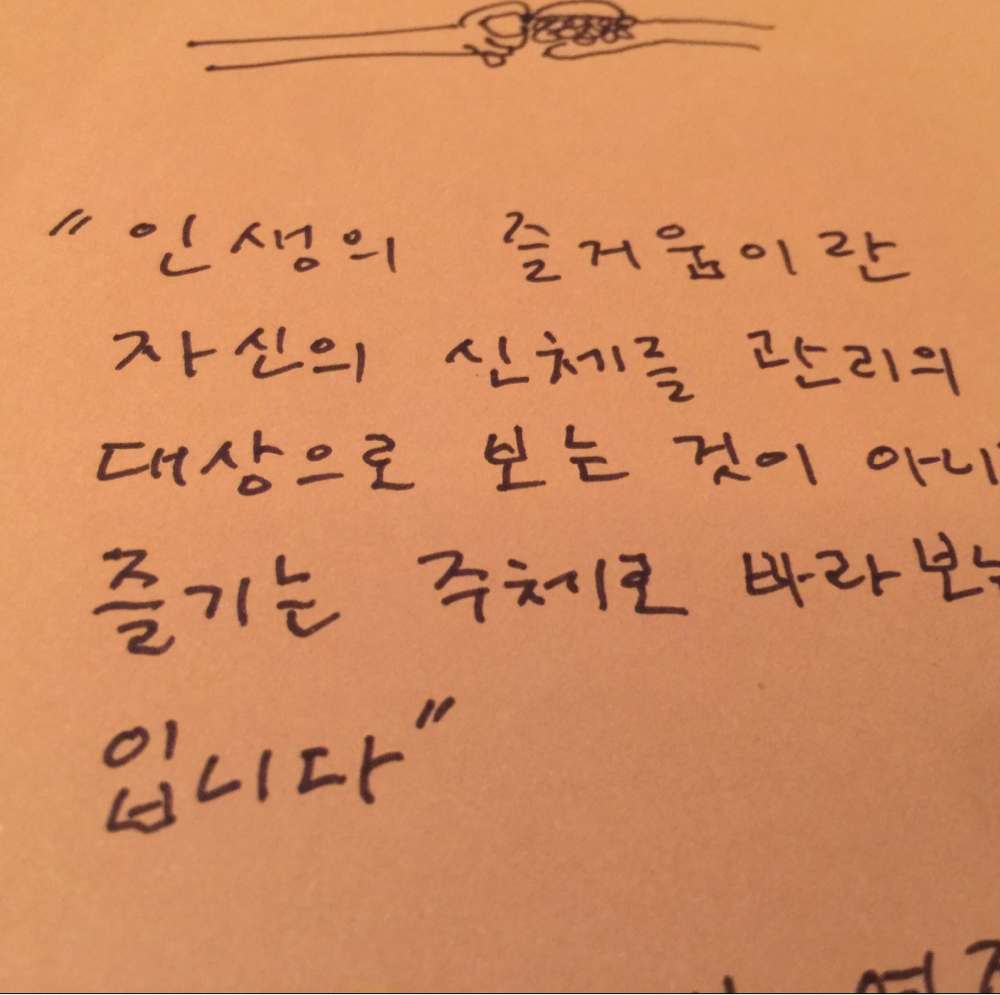 "인생의 즐거움이란
자신의 신체를 관리의
대상으로 보는 것이 아니
즐기는 주체로 바라보는
입니다"